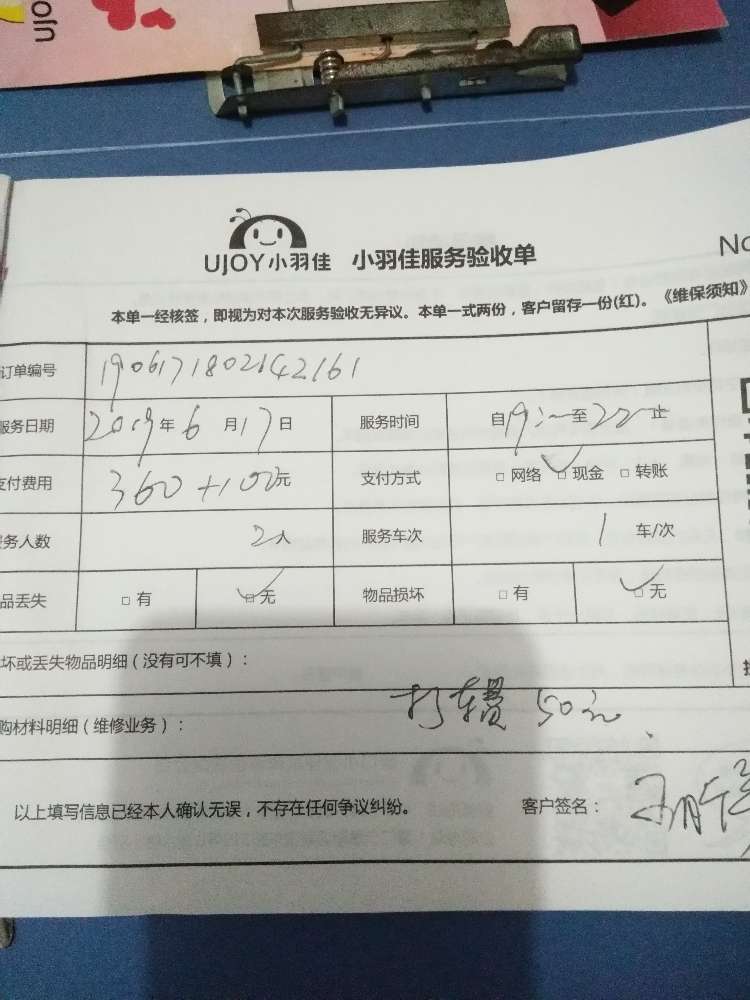 UJOY小羽佳 小羽佳服务验收单 No
本单一经核签，即视为对本次服务验收无异议。本单一式两份，客户留存一份(红)。《维保须知》
订单编号 1906171802142161
服务日期 2019年6月17日 服务时间 自19:至22止
支付费用 360+100元 支付方式 □网络 ☑现金 □转账
服务人数 2人 服务车次 1车/次
品丢失 □有 ☑无 物品损坏 □有 ☑无
坏或丢失物品明细（没有可不填）：
购材料明细（维修业务）： 打车费 50元
以上填写信息已经本人确认无误，不存在任何争议纠纷。 客户签名：